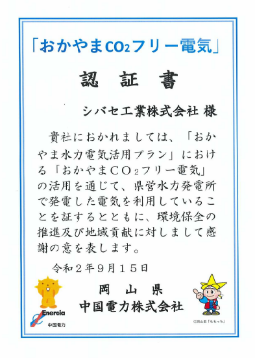 「おかやまCO₂フリー電気」
認証書
シバセ工業株式会社 様
貴社におかれましては、「おか
やま水力電気活用プラン」におけ
る「おかやまCO₂フリー電気」
の活用を通じて、県営水力発電所
で発電した電気を利用しているこ
とを証するとともに、環境保全の
推進及び地域貢献に対しまして感
謝の意を表します。
令和2年9月15日
岡山県
中国電力株式会社
Energia
中国電力